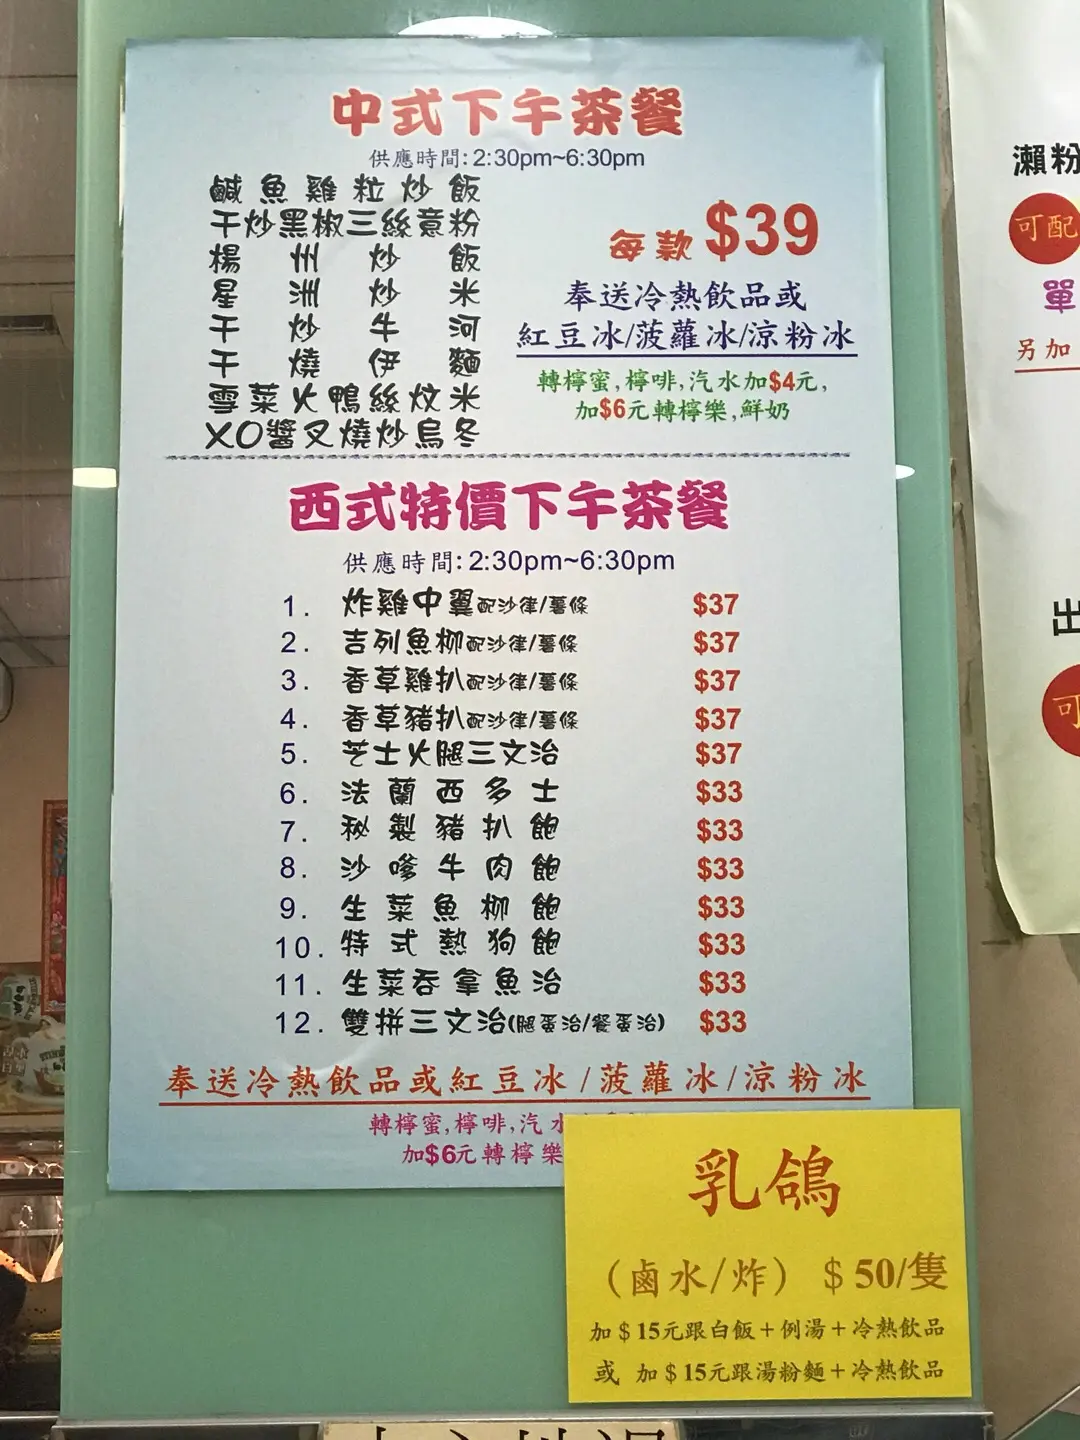 中式下午茶餐
供應時間: 2:30pm~6:30pm
鹹魚雞粒炒飯
干炒黑椒三絲意粉
楊州炒飯
星洲炒米
干炒牛河
干燒伊麵
雪菜火鴨絲炆米
XO醬叉燒炒烏冬
每款 $39
奉送冷熱飲品或
紅豆冰/菠蘿冰/涼粉冰
轉檸蜜,檸啡,汽水加$4元,
加$6元轉檸樂,鮮奶
西式特價下午茶餐
供應時間: 2:30pm~6:30pm
1. 炸雞中翼配沙律/薯條 $37
2. 吉列魚柳配沙律/薯條 $37
3. 香草雞扒配沙律/薯條 $37
4. 香草豬扒配沙律/薯條 $37
5. 芝士火腿三文治 $37
6. 法蘭西多士 $33
7. 秘製豬扒飽 $33
8. 沙嗲牛肉飽 $33
9. 生菜魚柳飽 $33
10. 特式熱狗飽 $33
11. 生菜吞拿魚治 $33
12. 雙拼三文治(腿蛋治/餐蛋治) $33
奉送冷熱飲品或紅豆冰/菠蘿冰/涼粉冰
轉檸蜜,檸啡,汽水
加$6元轉檸樂
乳鴿
(鹵水/炸) $50/隻
加$15元跟白飯+例湯+冷熱飲品
或 加$15元跟湯粉麵+冷熱飲品
瀨粉
可配
單
另加
出
可